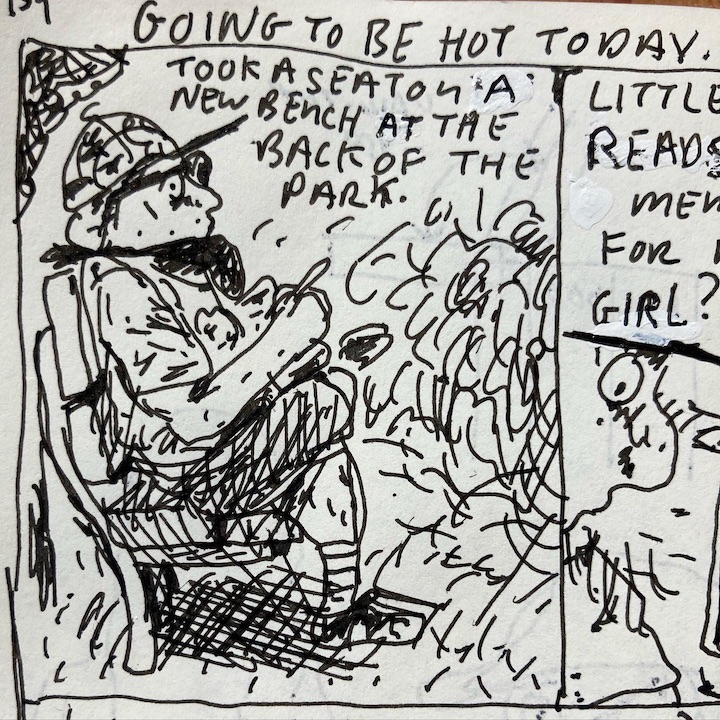 139
GOING TO BE HOT TODAY.
TOOK A SEAT ON A
NEW BENCH AT THE
BACK OF THE
PARK.
LITTLE
READS
FOR
GIRL?